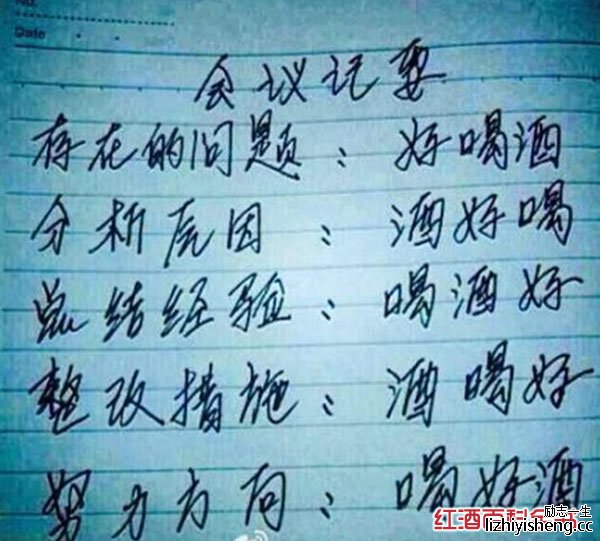 No.
Date
会议记要
存在的问题：好喝酒
分析原因：酒好喝
总结经验：喝酒好
整改措施：酒喝好
努力方向：喝好酒
红酒百科全书
励志一生
lizhiyisheng.cc